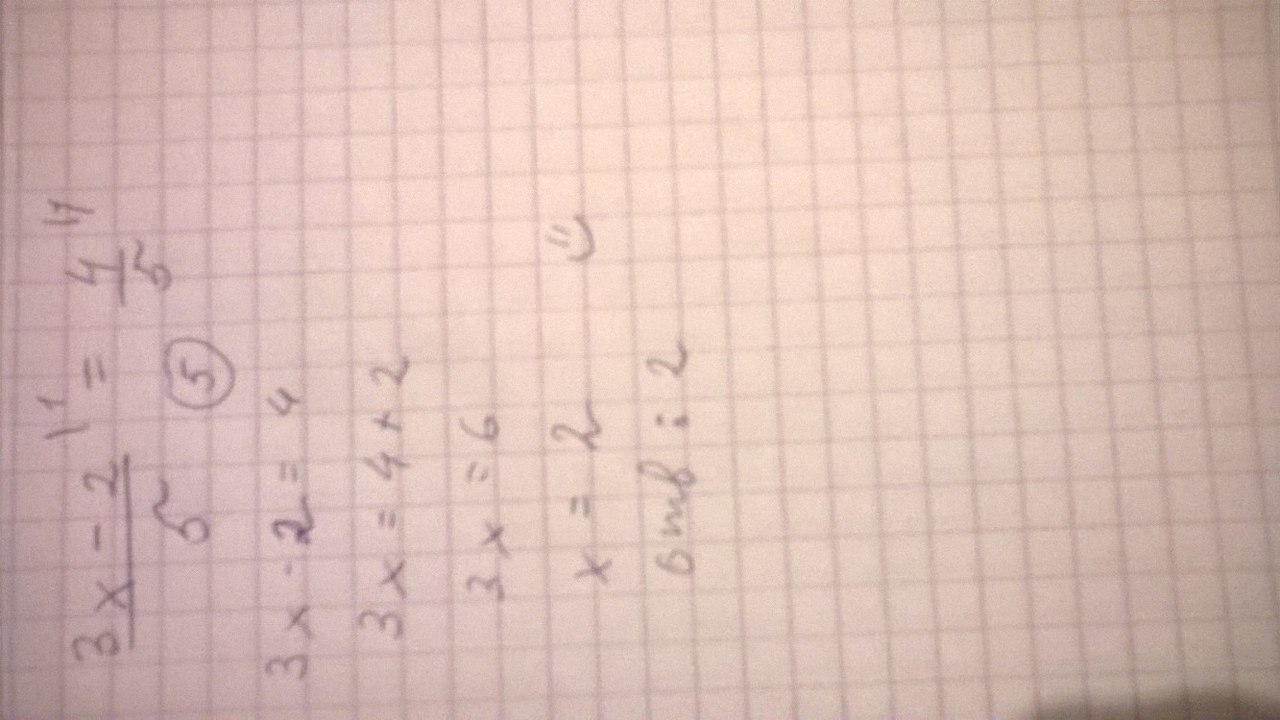 3x-2 / 5 \1 = 4 / 5 \1
5
3x-2=4
3x=4+2
3x=6
x=2
отв: 2